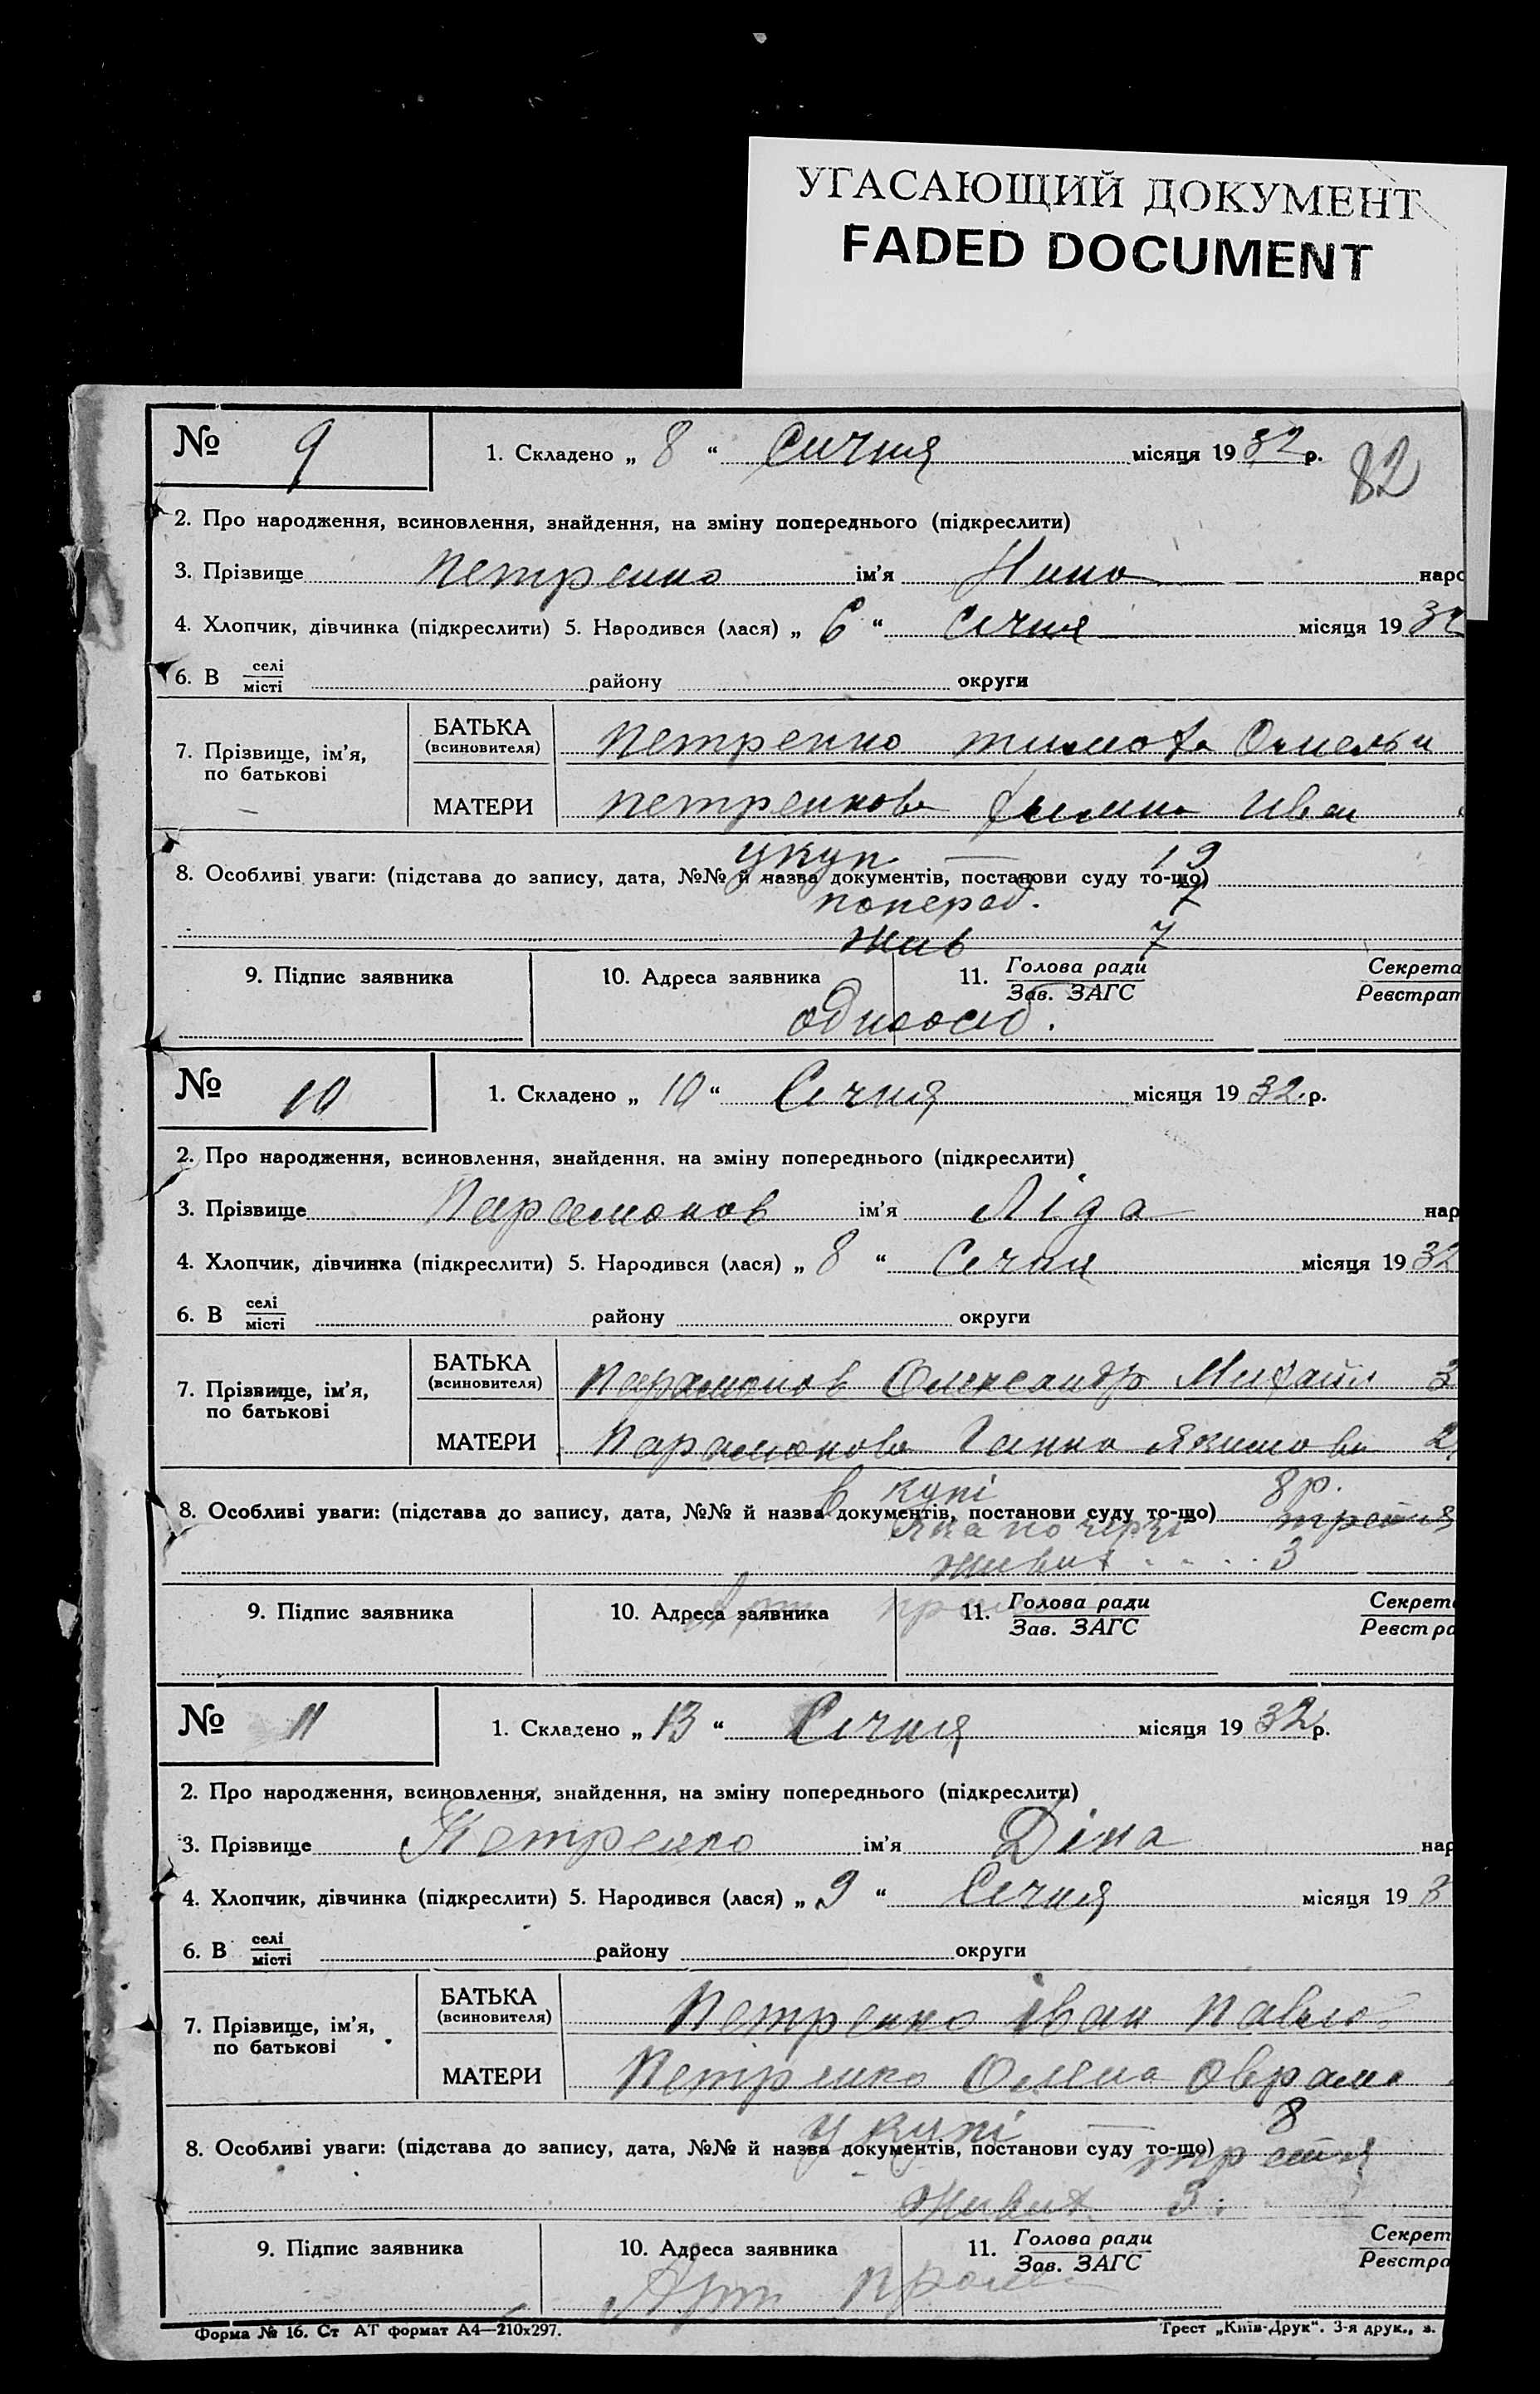 УГАСАЮЩИЙ ДОКУМЕНТ
FADED DOCUMENT
№ 9 1. Складено „ 8 “ Сичня місяця 19 32 р. 82
2. Про народження, всиновлення, знайдення, на зміну попереднього (підкреслити)
3. Прізвище Петренко ім’я Нина наро
4. Хлопчик, дівчинка (підкреслити) 5. Народився (лася) „ 6 “ Сичня місяця 19 32
6. В селі/місті району округи
7. Прізвище, ім’я, по батькові
БАТЬКА (всиновителя) Петренко тимофа Омельи
МАТЕРИ петренкова Иван
укуп — 19
8. Особливі уваги: (підстава до запису, дата, №№ й назва документів, постанови суду то-що)
поперед. 7
жив 7
9. Підпис заявника 10. Адреса заявника 11. Голова ради/Зав. ЗАГС Секрета/Реєстрат
одноосіб.
№ 10 1. Складено „ 10 “ Січня місяця 19 32 р.
2. Про народження, всиновлення, знайдення, на зміну попереднього (підкреслити)
3. Прізвище Парамонов ім’я Ліда нар
4. Хлопчик, дівчинка (підкреслити) 5. Народився (лася) „ 8 “ Січня місяця 19 32
6. В селі/місті району округи
7. Прізвище, ім’я, по батькові
БАТЬКА (всиновителя) Парамонов Олександр Михайл 3
МАТЕРИ Парамонова Ганна Якимова 2
в купі 8 р.
8. Особливі уваги: (підстава до запису, дата, №№ й назва документів, постанови суду то-що)
яка по черзі третя
живих . . . . 3
9. Підпис заявника 10. Адреса заявника 11. Голова ради/Зав. ЗАГС Секрета/Реєстра
Арт пром
№ 11 1. Складено „ 13 “ Січня місяця 19 32 р.
2. Про народження, всиновлення, знайдення, на зміну попереднього (підкреслити)
3. Прізвище Петренко ім’я Діна нар
4. Хлопчик, дівчинка (підкреслити) 5. Народився (лася) „ 9 “ Січня місяця 19 3
6. В селі/місті району округи
7. Прізвище, ім’я, по батькові
БАТЬКА (всиновителя) Петренко Іван Павло
МАТЕРИ Петренко Олена Оврамо
у купі — 8
8. Особливі уваги: (підстава до запису, дата, №№ й назва документів, постанови суду то-що) третя
живих 3.
9. Підпис заявника 10. Адреса заявника 11. Голова ради/Зав. ЗАГС Секрет/Реєстра
Арт пром
Форма № 16. Ст АТ формат А4—210х297. Трест „Київ-Друк“. 3-я друк., з.